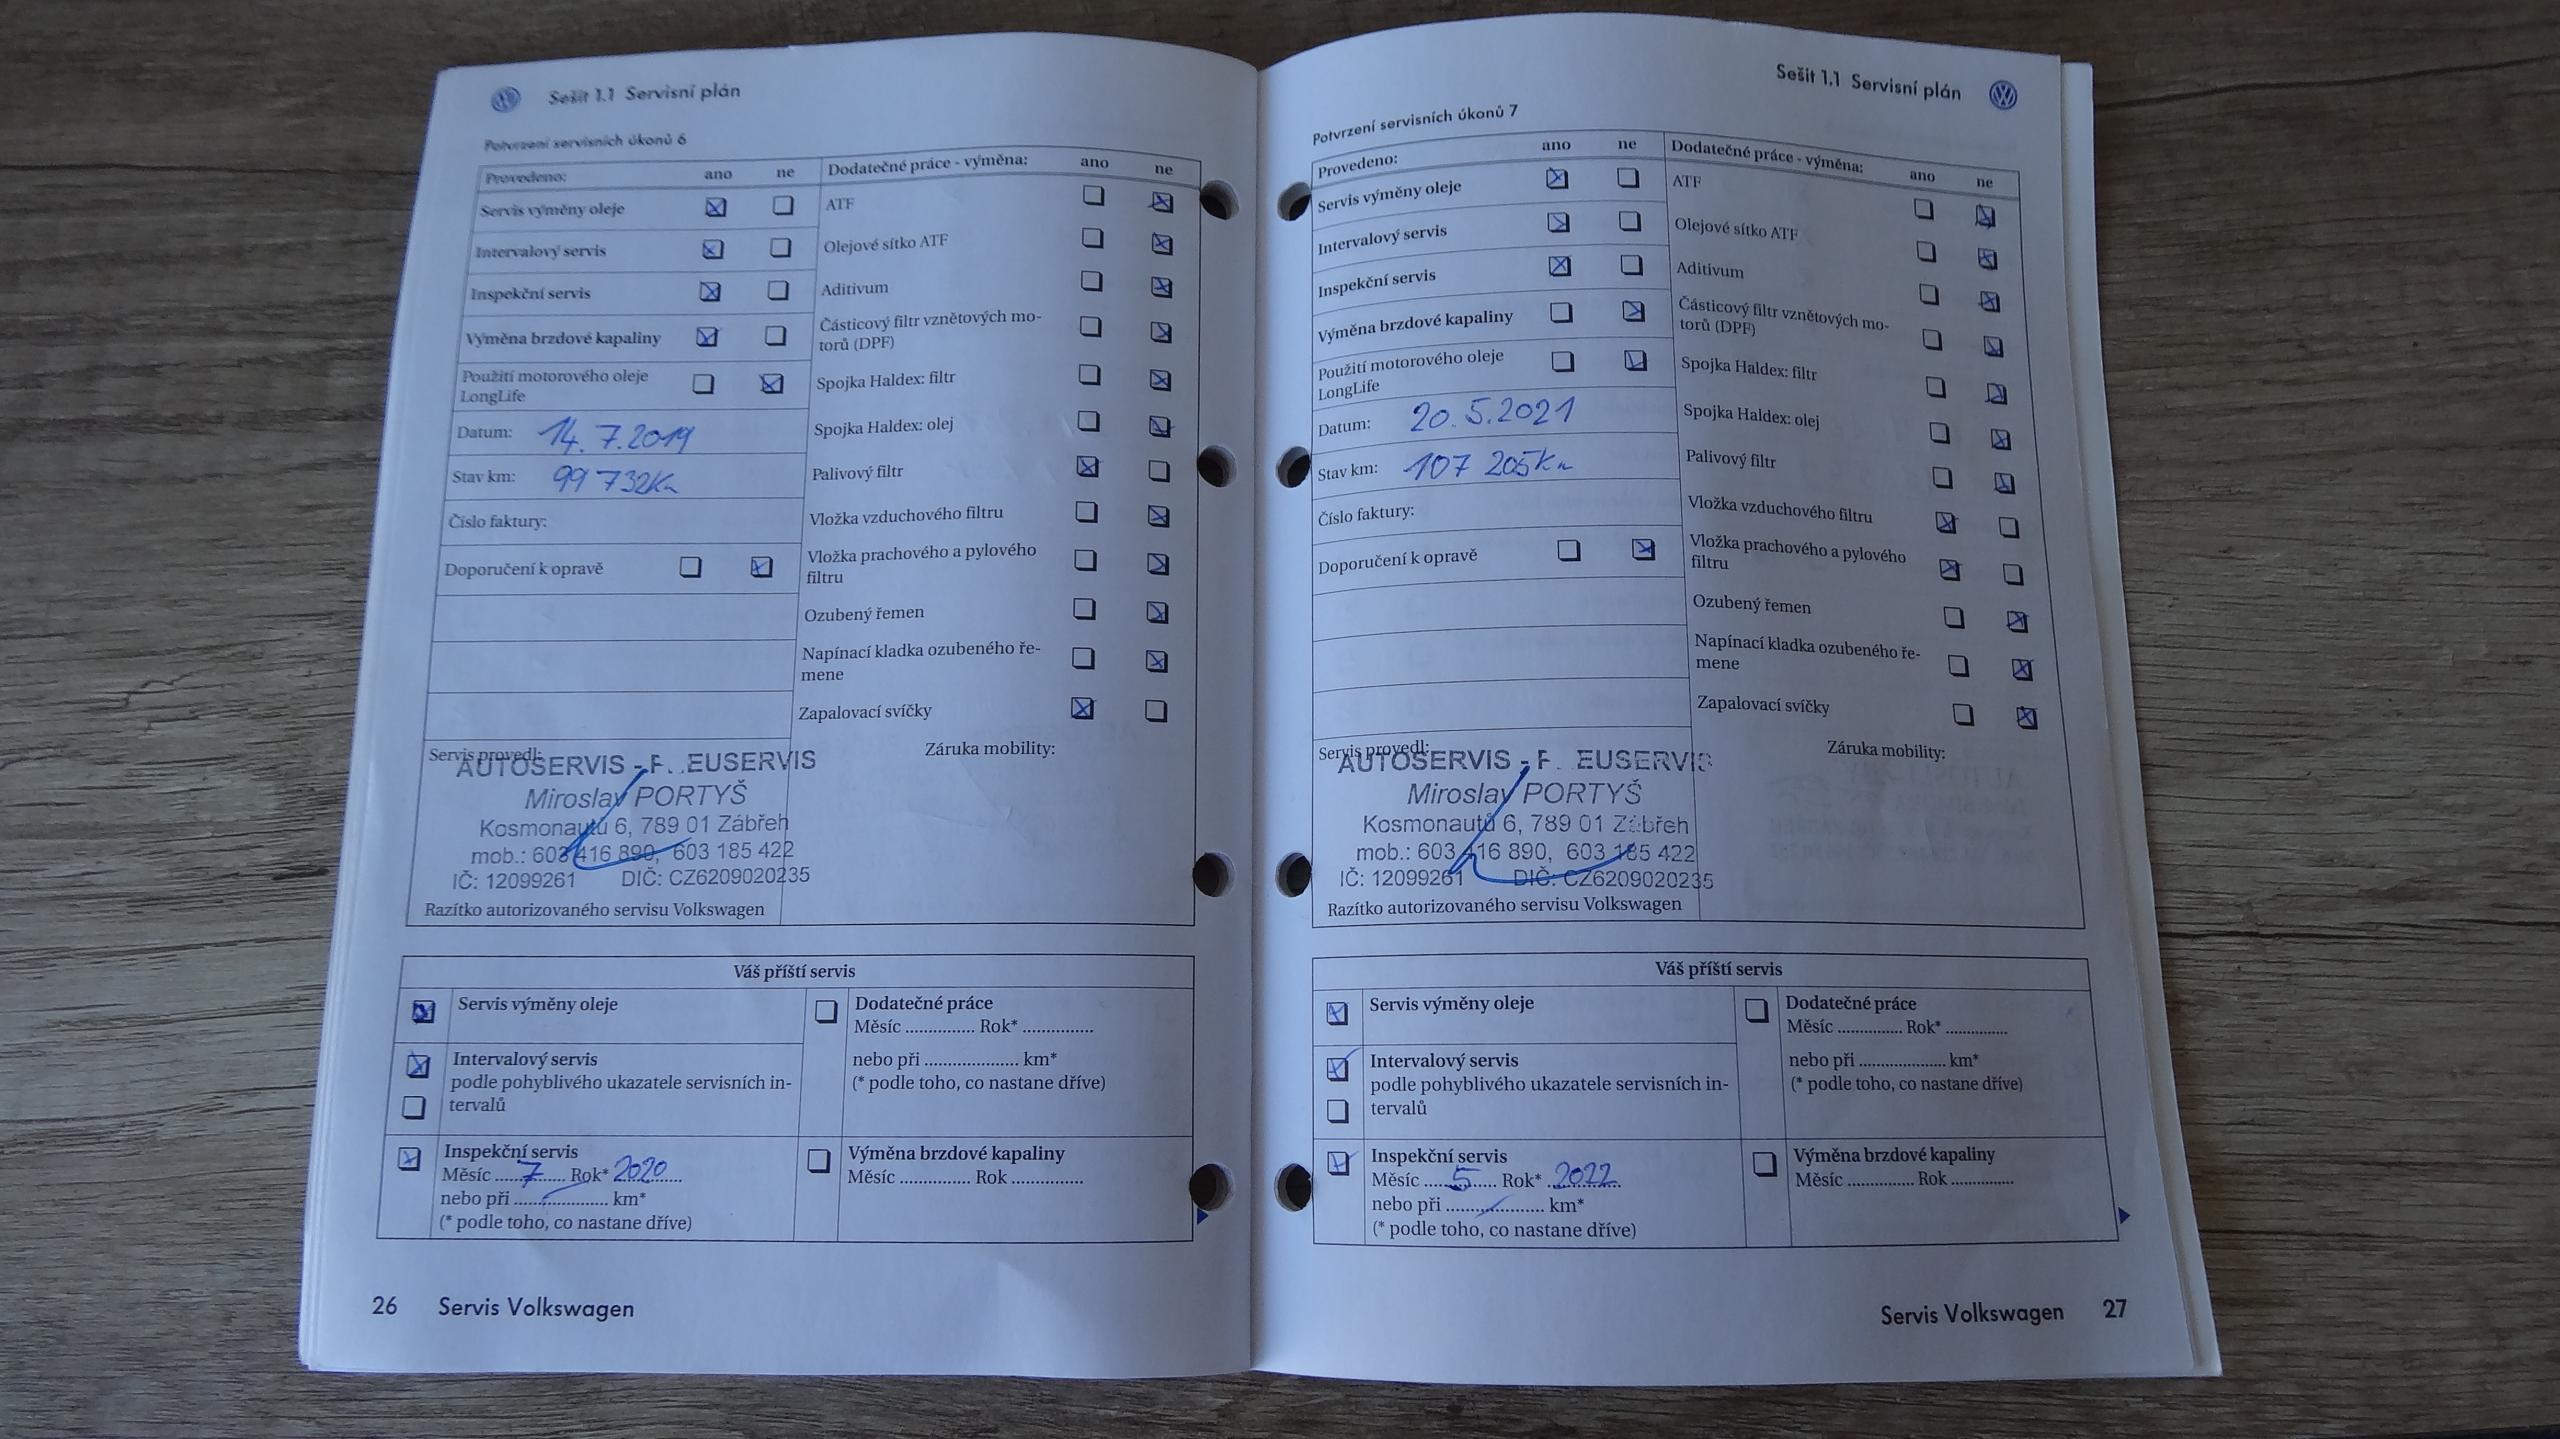 Sešit 1.1 Servisní plán
Potvrzení servisních úkonů 6
Provedeno: ano ne
Servis výměny oleje
Intervalový servis
Inspekční servis
Výměna brzdové kapaliny
Použití motorového oleje
LongLife
Datum: 14.7.2019
Stav km: 99 732Km
Číslo faktury:
Doporučení k opravě
Dodatečné práce - výměna: ano ne
ATF
Olejové sítko ATF
Aditivum
Částicový filtr vznětových mo-
torů (DPF)
Spojka Haldex: filtr
Spojka Haldex: olej
Palivový filtr
Vložka vzduchového filtru
Vložka prachového a pylového
filtru
Ozubený řemen
Napínací kladka ozubeného ře-
mene
Zapalovací svíčky
Servis provedl:
AUTOSERVIS -
Miroslav PORTYŠ
Kosmonautů 6, 789 01 Zábřeh
mob.: 603 416 890, 603 185 422
IČ: 12099261 DIČ: CZ6209020235
Razítko autorizovaného servisu Volkswagen
Záruka mobility:
Váš příští servis
Servis výměny oleje
Intervalový servis
podle pohyblivého ukazatele servisních in-
tervalů
Inspekční servis
Měsíc ...7... Rok* 2020
nebo při .................... km*
(* podle toho, co nastane dříve)
Dodatečné práce
Měsíc ............... Rok* ...............
nebo při .................... km*
(* podle toho, co nastane dříve)
Výměna brzdové kapaliny
Měsíc ............... Rok ...............
26 Servis Volkswagen
Sešit 1.1 Servisní plán
Potvrzení servisních úkonů 7
Provedeno: ano ne
Servis výměny oleje
Intervalový servis
Inspekční servis
Výměna brzdové kapaliny
Použití motorového oleje
LongLife
Datum: 20.5.2021
Stav km: 107 205Km
Číslo faktury:
Doporučení k opravě
Dodatečné práce - výměna: ano ne
ATF
Olejové sítko ATF
Aditivum
Částicový filtr vznětových mo-
torů (DPF)
Spojka Haldex: filtr
Spojka Haldex: olej
Palivový filtr
Vložka vzduchového filtru
Vložka prachového a pylového
filtru
Ozubený řemen
Napínací kladka ozubeného ře-
mene
Zapalovací svíčky
Servis provedl:
AUTOSERVIS -
Miroslav PORTYŠ
Kosmonautů 6, 789 01 Zábřeh
mob.: 603 416 890, 603 185 422
IČ: 12099261 DIČ: CZ6209020235
Razítko autorizovaného servisu Volkswagen
Záruka mobility:
Váš příští servis
Servis výměny oleje
Intervalový servis
podle pohyblivého ukazatele servisních in-
tervalů
Inspekční servis
Měsíc ...5... Rok* 2022
nebo při .................... km*
(* podle toho, co nastane dříve)
Dodatečné práce
Měsíc ............... Rok* ...............
nebo při .................... km*
(* podle toho, co nastane dříve)
Výměna brzdové kapaliny
Měsíc ............... Rok ...............
Servis Volkswagen 27